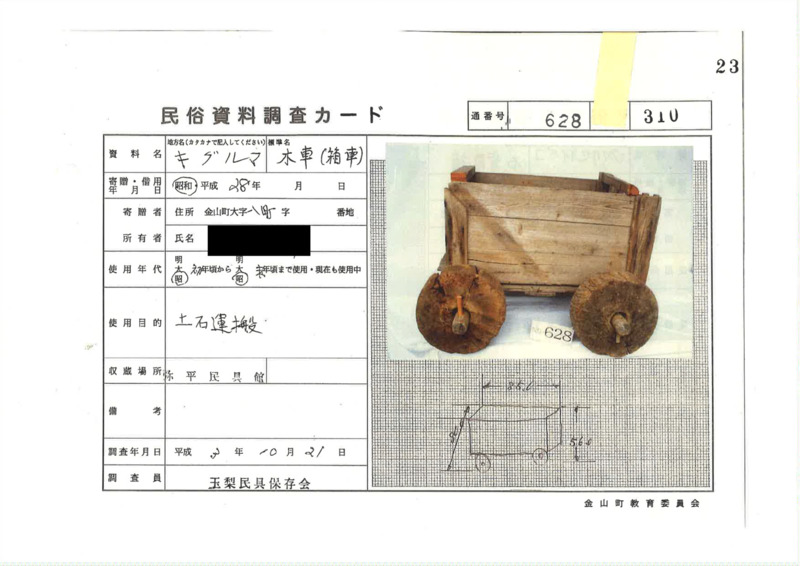 23
民俗資料調査カード
通番号 628 310
資料名 地方名(カタカナで記入してください) キグルマ 標準名 木車(箱車)
寄贈・借用年月日 昭和・平成 28年 月 日
寄贈者 住所 金山町大字八町 字 番地
所有者 氏名
使用年代 明大昭 初年頃から 明大昭 末年頃まで使用・現在も使用中
使用目的 土石運搬
収蔵場所 弥平民具館
備考
調査年月日 平成 3年 10月 21日
調査員 玉梨民具保存会
628
85.0
56.0
金山町教育委員会